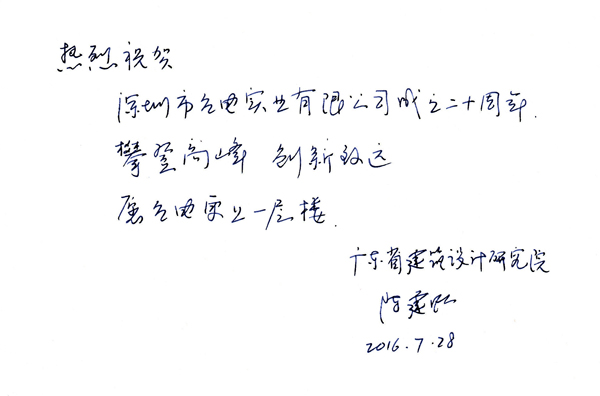 热烈祝贺
深圳市台电实业有限公司成立二十周年.
攀登高峰 创新致远
愿台电更上一层楼.
广东省建筑设计研究院
陈建
2016.7.28